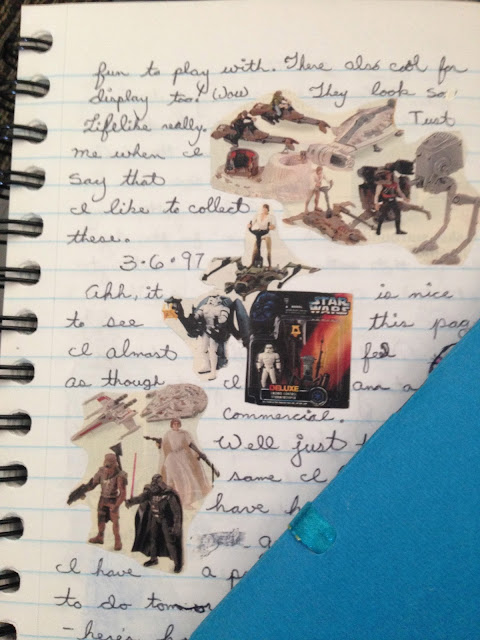 fun to play with. There also cool for
display too! (Wow) They look so
Lifelike really. Trust
me when I
say that
I like to collect
these.
3·6·97
Ahh, it is nice
to see this pag
I almost feel
as though I am a
commercial.
Well just
same I
have
a
I have a p
to do tomor
-here's h
STAR
WARS
DELUXE